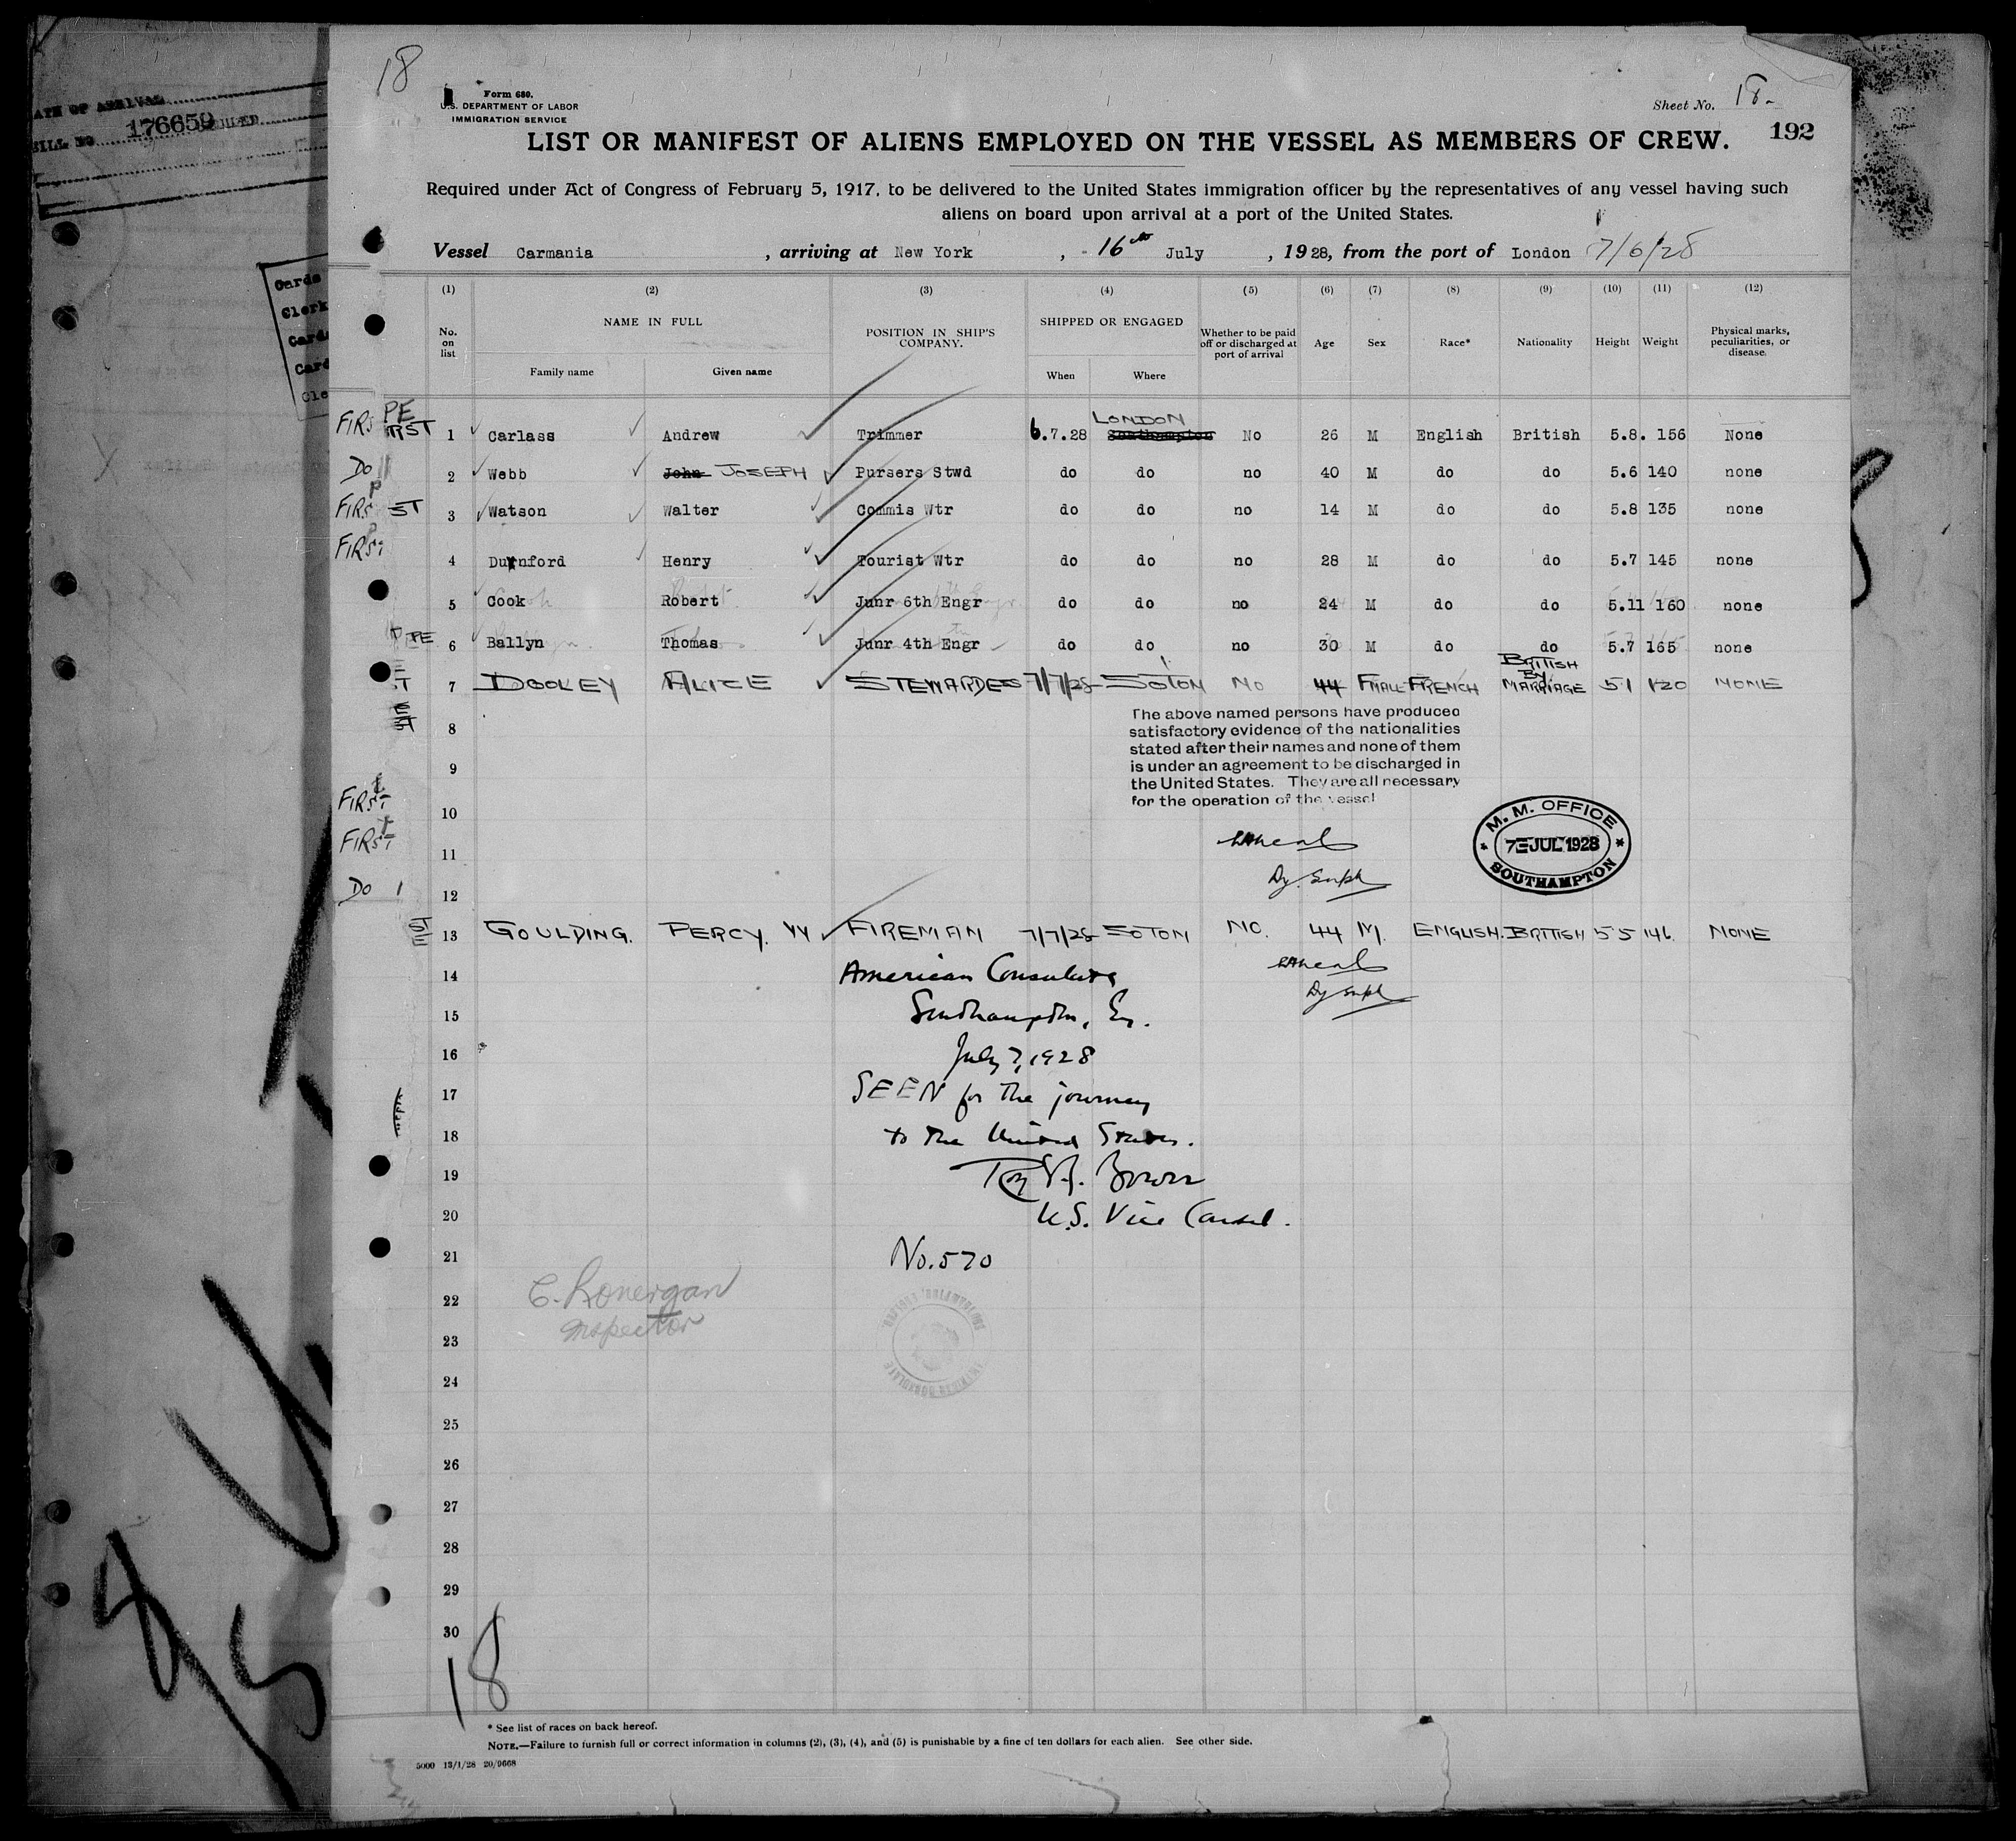 18
Form 680.
U.S. DEPARTMENT OF LABOR
IMMIGRATION SERVICE
Sheet No. 18
192
LIST OR MANIFEST OF ALIENS EMPLOYED ON THE VESSEL AS MEMBERS OF CREW.
Required under Act of Congress of February 5, 1917, to be delivered to the United States immigration officer by the representatives of any vessel having such
aliens on board upon arrival at a port of the United States.
Vessel Carmania, arriving at New York, 16th July, 1928, from the port of London 7/6/28
176659
(1) (2) (3) (4) (5) (6) (7) (8) (9) (10) (11) (12)
No. on list NAME IN FULL Family name Given name POSITION IN SHIP'S COMPANY. SHIPPED OR ENGAGED When Where Whether to be paid off or discharged at port of arrival Age Sex Race* Nationality Height Weight Physical marks, peculiarities, or disease.
FIRST 1 Carlass Andrew Trimmer 6.7.28 LONDON Southampton No 26 M English British 5.8. 156 None
Do 2 Webb John JOSEPH Pursers Stwd do do no 40 M do do 5.6 140 none
FIRST 3 Watson Walter Commis Wtr do do no 14 M do do 5.8 135 none
FIRST 4 Durnford Henry Tourist Wtr do do no 28 M do do 5.7 145 none
5 Cook Robert Junr 6th Engr do do no 24 M do do 5.11 160 none
6 Ballyn Thomas Junr 4th Engr do do no 30 M do do 5.7 165 none
7 DOOLEY ALICE STEWARDES 7/7/28 SOTON NO 44 FMALE FRENCH BRITISH BY MARRIAGE 51 120 NONE
8
The above named persons have produced
satisfactory evidence of the nationalities
stated after their names and none of them
is under an agreement to be discharged in
the United States. They are all necessary
for the operation of the vessel
9
FIRST 10
M. M. OFFICE
7 JUL 1928
SOUTHAMPTON
FIRST 11
Do 1 12
Dy. Supt
13 GOULDING. PERCY. W FIREMAN 7/7/28 SOTON NO. 44 M. ENGLISH. BRITISH 55 146 NONE
14 American Consulate
Dy Supt
15 Southampton, Eng.
16 July 7, 1928
17 SEEN for the journey
18 to the United States.
19 Bower
20 U.S. Vice Consul.
21 No. 570
22 C. Lonergan
23 Inspector
24
25
26
27
28
29
30
18
* See list of races on back hereof.
NOTE.—Failure to furnish full or correct information in columns (2), (3), (4), and (5) is punishable by a fine of ten dollars for each alien. See other side.
5000 13/1/28 20/9668